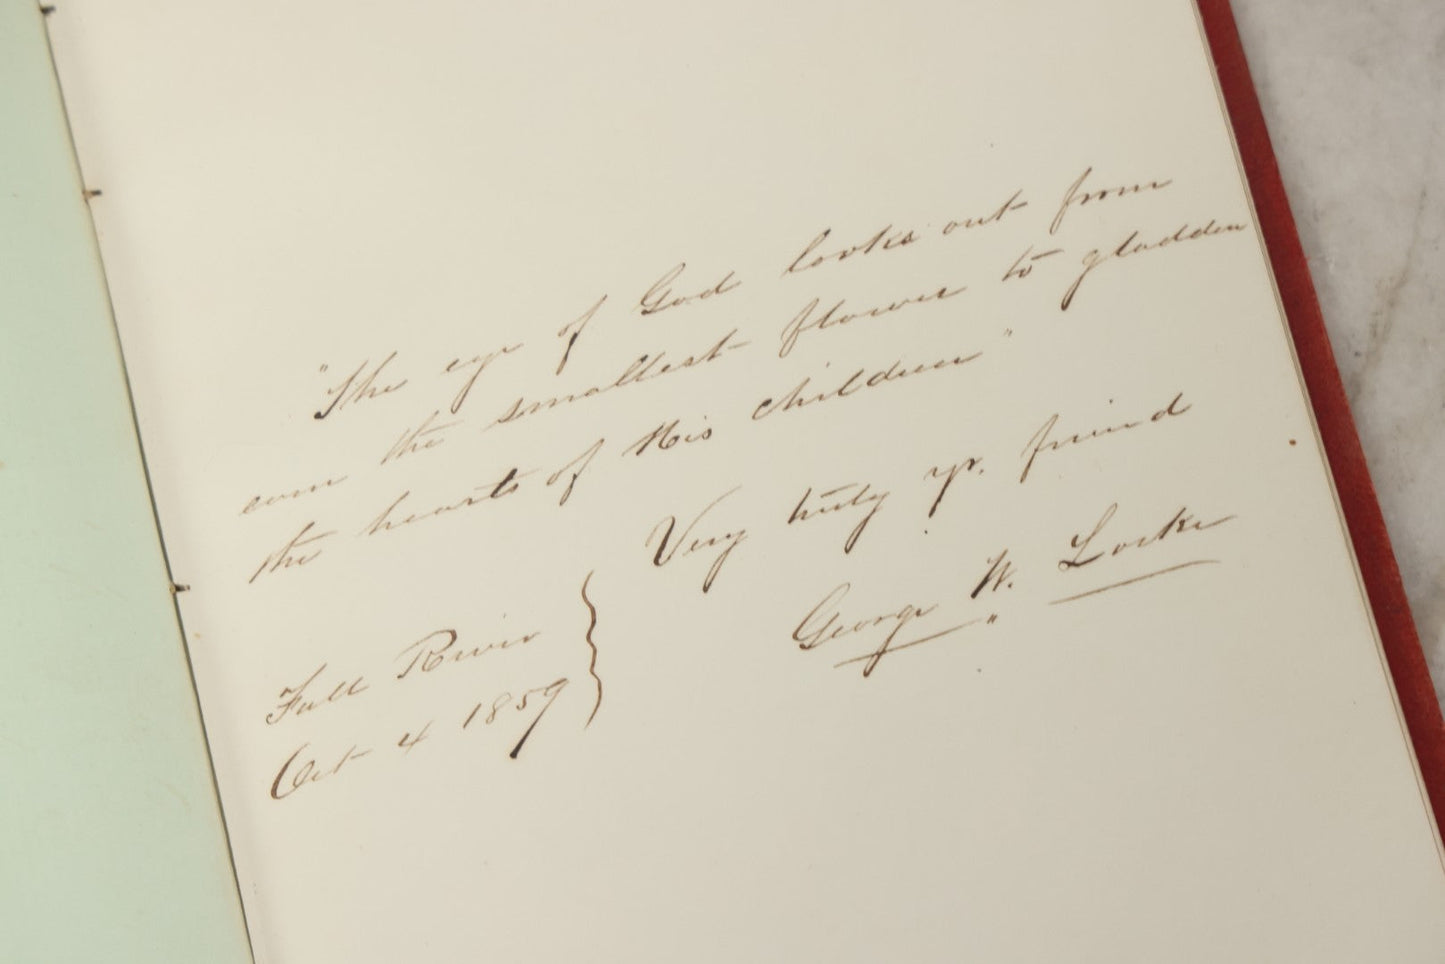 "The eye of God looks out from
even the smallest flower to gladden
the hearts of His children"
Very truly yr. friend
George W. Locke
Fall River
Oct 4 1859